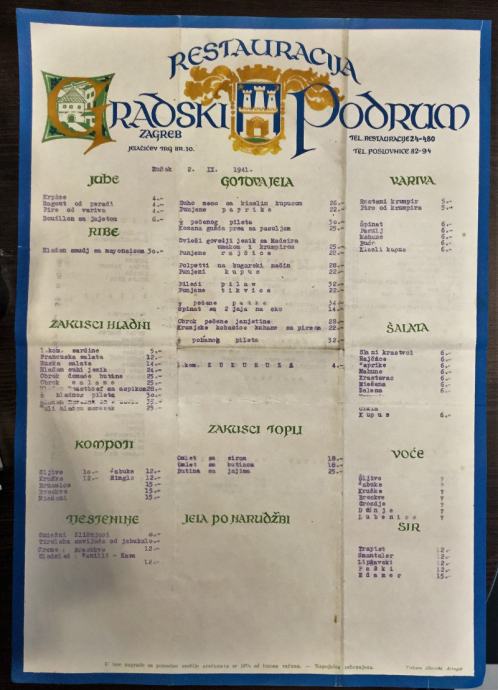 RESTAURACIJA
GRADSKI PODRUM
ZAGREB
JELAČIĆEV TRG BR. 10.
TEL. RESTAURACIJE 24-480
TEL. POSLOVNICE 82-94
Ručak 2. IX. 1941.
JUHE
Krpice 4.-
Ragout od peradi 4.-
Pire od variva 4.-
Bouillon sa jajetom 6.-
RIBE
Hladan smudj sa mayonaisom 30.-
ZAKUSCI HLADNI
1.kom. sardine 5.-
Francuska salata 12.-
Ruska salata 14.-
Hladan suhi jezik 24.-
Obrok domaće butine 25.-
Obrok salame 25.-
hladnog pileta
25.-
KOMPOTI
Šljive 10.- Jabuke 12.-
Kruške 12.- Ringlo 12.-
Brusnice 15.-
Breskve 15.-
Miešani 15.-
TJESTENINE
Tirolska savijača od jabuka
Creme: 12.-
Sladoled: Vanilli - Kava
12.-
GOTOVA JELA
Suho meso sa kiselim kupusom 26.-
Punjene paprike 22.-
½ pečenog pileta
Kozana gušča prsa sa pasuljem 25.-
Svježi govedji jezik sa Madeira
umakom i krumpirom 25.-
Punjene rajčice 22.-
Polpetti na bugarski način 22.-
Punjeni kupus 22.-
Pileći pilaw 32.-
Punjene tikvice 22.-
¼ pečene patke 34.-
Špinat sa 2 jaja na oko 14.-
Obrok pečene janjetine 28.-
Kranjske kobasice kuhane sa pireom 22.-
½ pohanog pileta 32.-
1.kom. KUKURUZA 4.-
ZAKUSCI TOPLI
Omlet sa sirom 18.-
Omlet sa butinom 18.-
Butina sa jajima 25.-
JELA PO NARUDŽBI
VARIVA
Restani krumpir 5.-
Pire od krumpira 5.-
Špinat 6.-
Pasulj 6.-
Mahune 6.-
Buče 6.-
Kiseli kupus 6.-
ŠALATA
Slani krastavci 6.-
Rajčice 6.-
Paprike 6.-
Mahune 6.-
Krastavac 6.-
Miešana 6.-
Zelena 6.-
Kupus 6.-
VOĆE
Šljive 7
Jabuke 7
Kruške 7
Breskve 7
Grozdje 7
Dinja 7
Lubenice 7
SIR
Trapist 12.-
Emantaler 12.-
Lipčavski 12.-
Paški 12.-
Edamer 15.-